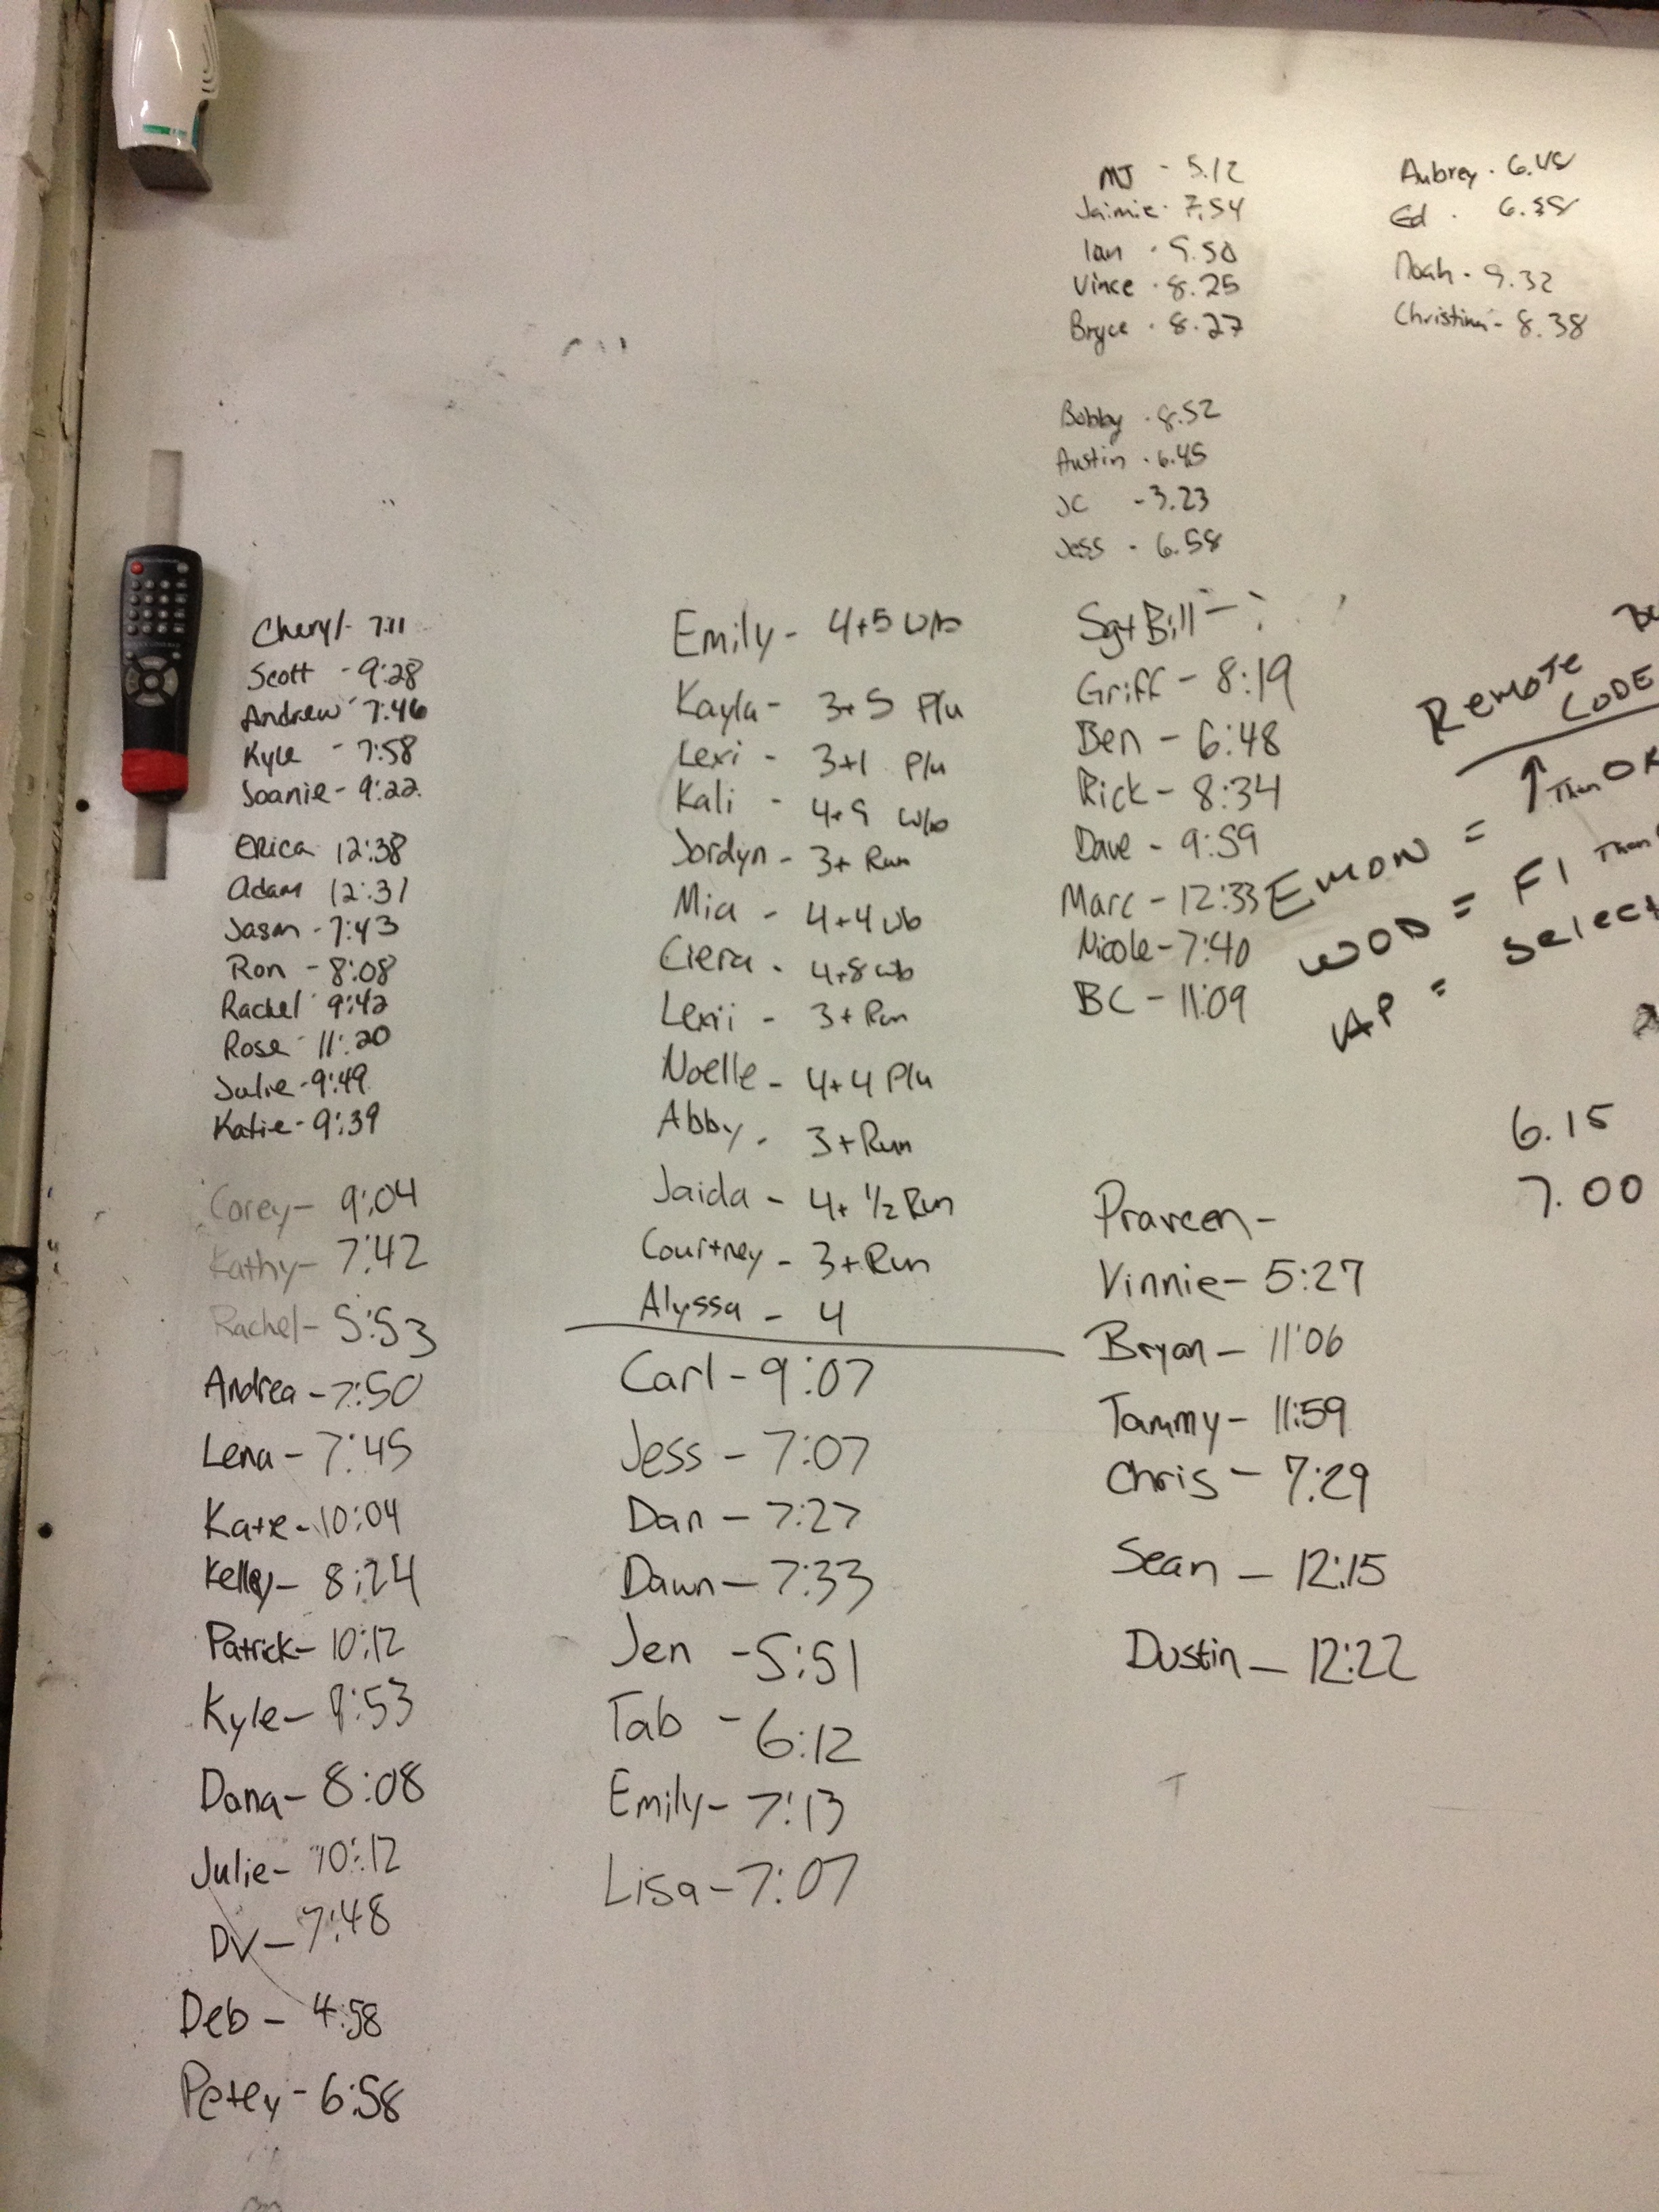 MJ - 5.12
Jaimie - 7.54
Ian - 9.50
Vince - 8.25
Bryce - 8.27
Aubrey - 6.48
Ed -
Noah - 9.32
Christina - 8.38
Bobby - 8.52
Austin - 6.45
JC - 3.23
Jess - 6.58
Cheryl - 7:11
Scott - 9:28
Andrew - 7:46
Kyle - 7:58
Joanie - 9:22
Erica 12:38
Adam 12:31
Jason - 7:43
Ron - 8:08
Rachel - 9:42
Rose - 11:20
Julie - 9:49
Katie - 9:39
Corey - 9:04
Kathy - 7:42
Rachel - 5:53
Andrea - 7:50
Lena - 7:45
Katie - 10:04
Kelly - 8:24
Patrick - 10:12
Kyle - :53
Dana - 8:08
Julie - 10:12
DV - 7:48
Deb - 4:58
Petey - 6:58
Emily - 4+5 w/b
Kayla - 3+5 Plu
Lexi - 3+1 Plu
Kali - 4+9 w/b
Jordyn - 3+ Run
Mia - 4+4 wb
Ciera - 4+8 wb
Lexii - 3+ Run
Noelle - 4+4 Plu
Abby - 3+Run
Jaida - 4+ 1/2 Run
Courtney - 3+Run
Alyssa - 4
Carl - 9:07
Jess - 7:07
Dan - 7:27
Dawn - 7:33
Jen - 5:51
Tab - 6:12
Emily - 7:13
Lisa - 7:07
Sgt Bill -
Griff - 8:19
Ben - 6:48
Rick - 8:34
Dave - 9:59
Marc - 12:33
Nicole - 7:40
BC - 11:09
Praveen -
Vinnie - 5:27
Bryan - 11:06
Tammy - 11:59
Chris - 7:29
Sean - 12:15
Dustin - 12:22
REMOTE
CODE
EMOM = ↑ Then OK
WOD = F1 Then
AP = Select
6.15
7.00